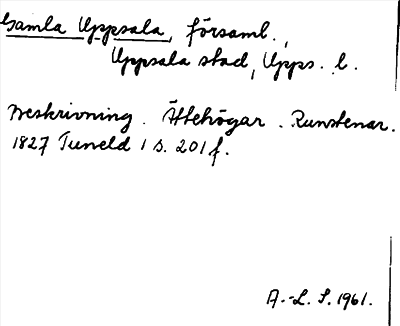 Gamla Uppsala, församl.,
Uppsala stad, Upps. l.
Beskrivning. Ättehögar. Runstenar.
1827 Tuneld I s. 201 f.
A.-L. S. 1961.